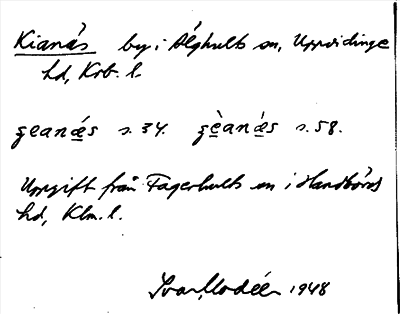 Kianäs by i Älghults sn, Uppvidinge
hd, Krb. l.
ʒeanä̱s s. 34. ʒè̱anä̱́s s. 58.
Uppgift från Fagerhults sn i Handbörds
hd, Klm. l.
Ivar Modéer 1948